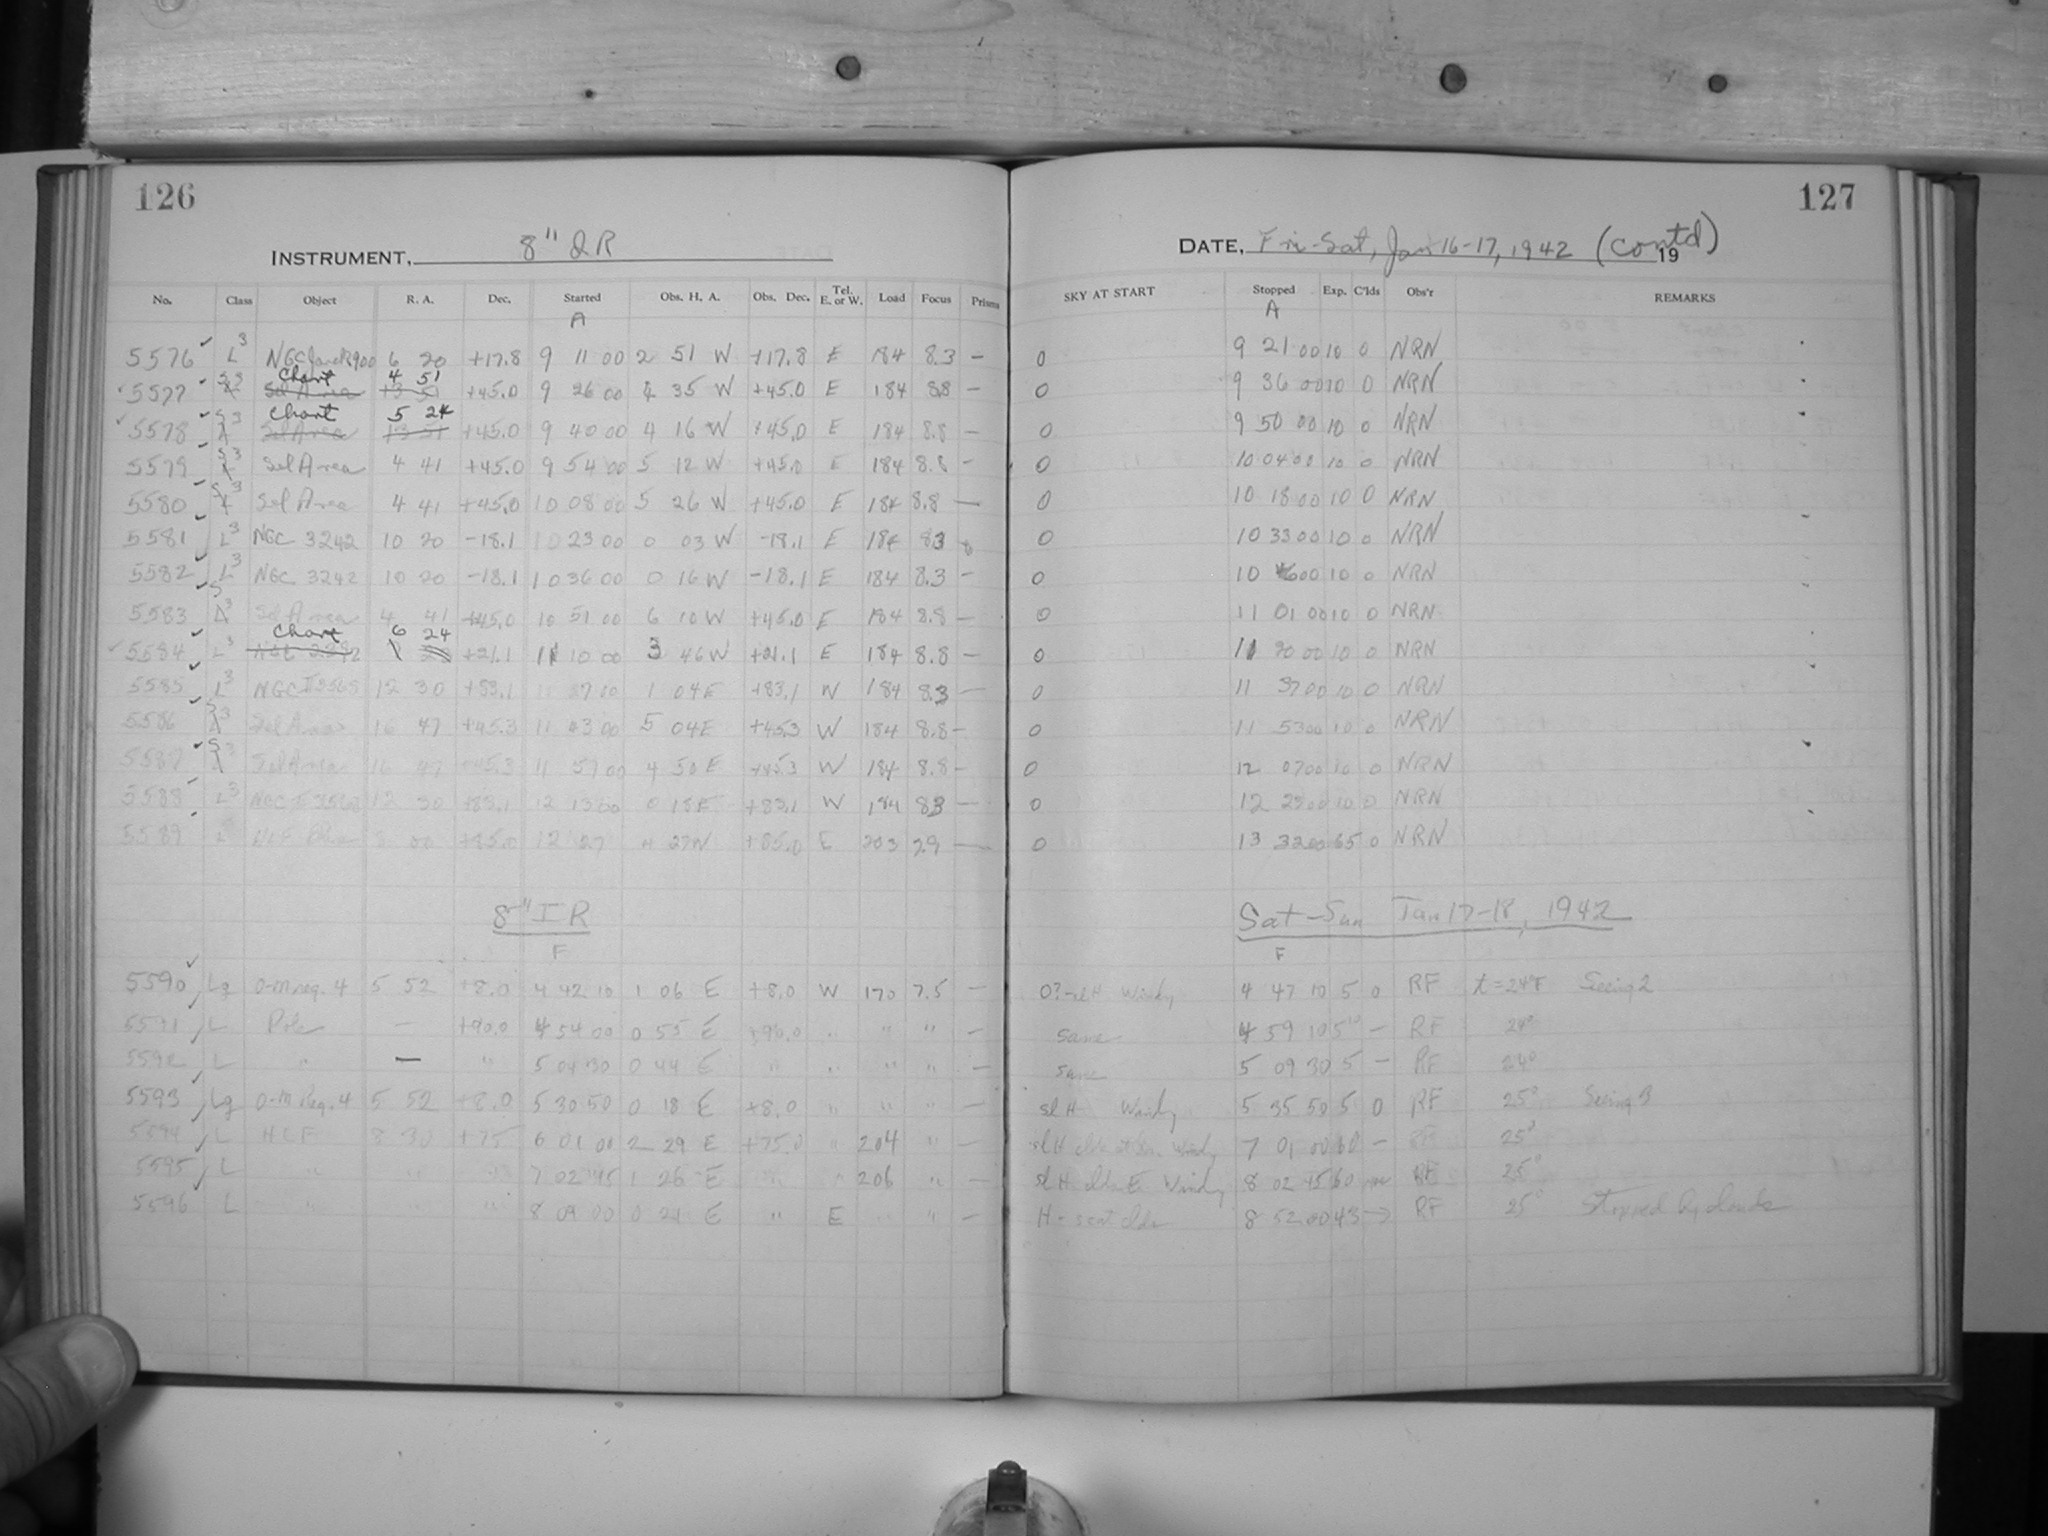 126
INSTRUMENT, 8" IR
No. Class Object R. A. Dec. Started Obs. H. A. Obs. Dec. Tel. E. or W. Load Focus Prisms
A
5576 L3 6 20 +17.8 9 11 00 2 51 W +17.8 E 184 8.3 —
Chart 4 51
5577 Sel Area +45.0 9 26 00 4 35 W +45.0 E 184 8.8 —
Chart 5 24
5578 Sel Area 13 51 +45.0 9 40 00 4 16 W +45.0 E 184 8.8 —
5579 Sel Area 4 41 +45.0 9 54 00 5 12 W +45.0 E 184 8.8 —
5580 Sel Area 4 41 +45.0 10 08 00 5 26 W +45.0 E 184 8.8 —
5581 L3 NGC 3242 10 20 -18.1 10 23 00 0 03 W -18.1 E 184 8.3
5582 L3 NGC 3242 10 20 -18.1 10 36 00 0 16 W -18.1 E 184 8.3 —
5583 Sel Area 4 41 +45.0 10 51 00 6 10 W +45.0 E 184 8.8 —
Chart 6 24
5584 L3 +21.1 11 10 00 3 46 W +21.1 E 184 8.8 —
5585 L3 NGC 12 30 +83.1 11 00 1 04 E +83.1 W 184 8.3 —
5586 Sel Area 16 47 +45.3 11 43 00 5 04 E +45.3 W 184 8.8 —
5587 Sel Area 16 47 +45.3 11 57 00 4 50 E +45.3 W 184 8.8 —
5588 L3 NGC 12 30 +83.1 12 13 00 0 18 E +83.1 W 184 8.3 —
5589 L 8 00 +85.0 12 27 4 27 W +85.0 E 203 7.9 —
8" IR
F
5590 Lg O-M reg. 4 5 52 +8.0 4 42 10 1 06 E +8.0 W 170 7.5 —
5591 L Pole — +90.0 4 54 00 0 55 E +90.0 " " " —
5592 L " — " 5 04 30 0 44 E " " " " —
5593 Lg O-M Reg. 4 5 52 +8.0 5 30 50 0 18 E +8.0 " " " —
5594 L HCF 8 30 +75 6 01 00 2 29 E +75.0 " 204 " —
5595 L " " " 7 02 45 1 26 E " 206 " —
5596 L " " " 8 09 00 0 21 E " E " " —
127
DATE, Fri-Sat, Jan 16-17, 1942 (Contd) 19
SKY AT START Stopped Exp. C'lds Obs'r REMARKS
A
0 9 21 00 10 0 NRN
0 9 36 00 10 0 NRN
0 9 50 00 10 0 NRN
0 10 04 00 10 0 NRN
0 10 18 00 10 0 NRN
0 10 33 00 10 0 NRN
0 10 46 00 10 0 NRN
0 11 01 00 10 0 NRN
0 11 20 00 10 0 NRN
0 11 37 00 10 0 NRN
0 11 53 00 10 0 NRN
0 12 07 00 10 0 NRN
0 12 23 00 10 0 NRN
0 13 32 00 65 0 NRN
Sat-Sun Jan 17-18, 1942
F
0?-sl H Windy 4 47 10 5 0 RF t=24°F Seeing 2
same 4 59 10 5 10 — RF 24°
same 5 09 30 5 — RF 24°
sl H Windy 5 35 50 5 0 RF 25° Seeing 3
sl H Windy 7 01 00 60 — RF 25°
sl H clds E Windy 8 02 45 60 RF 25°
H - scat clds 8 52 00 43 RF 25° Stopped by clouds